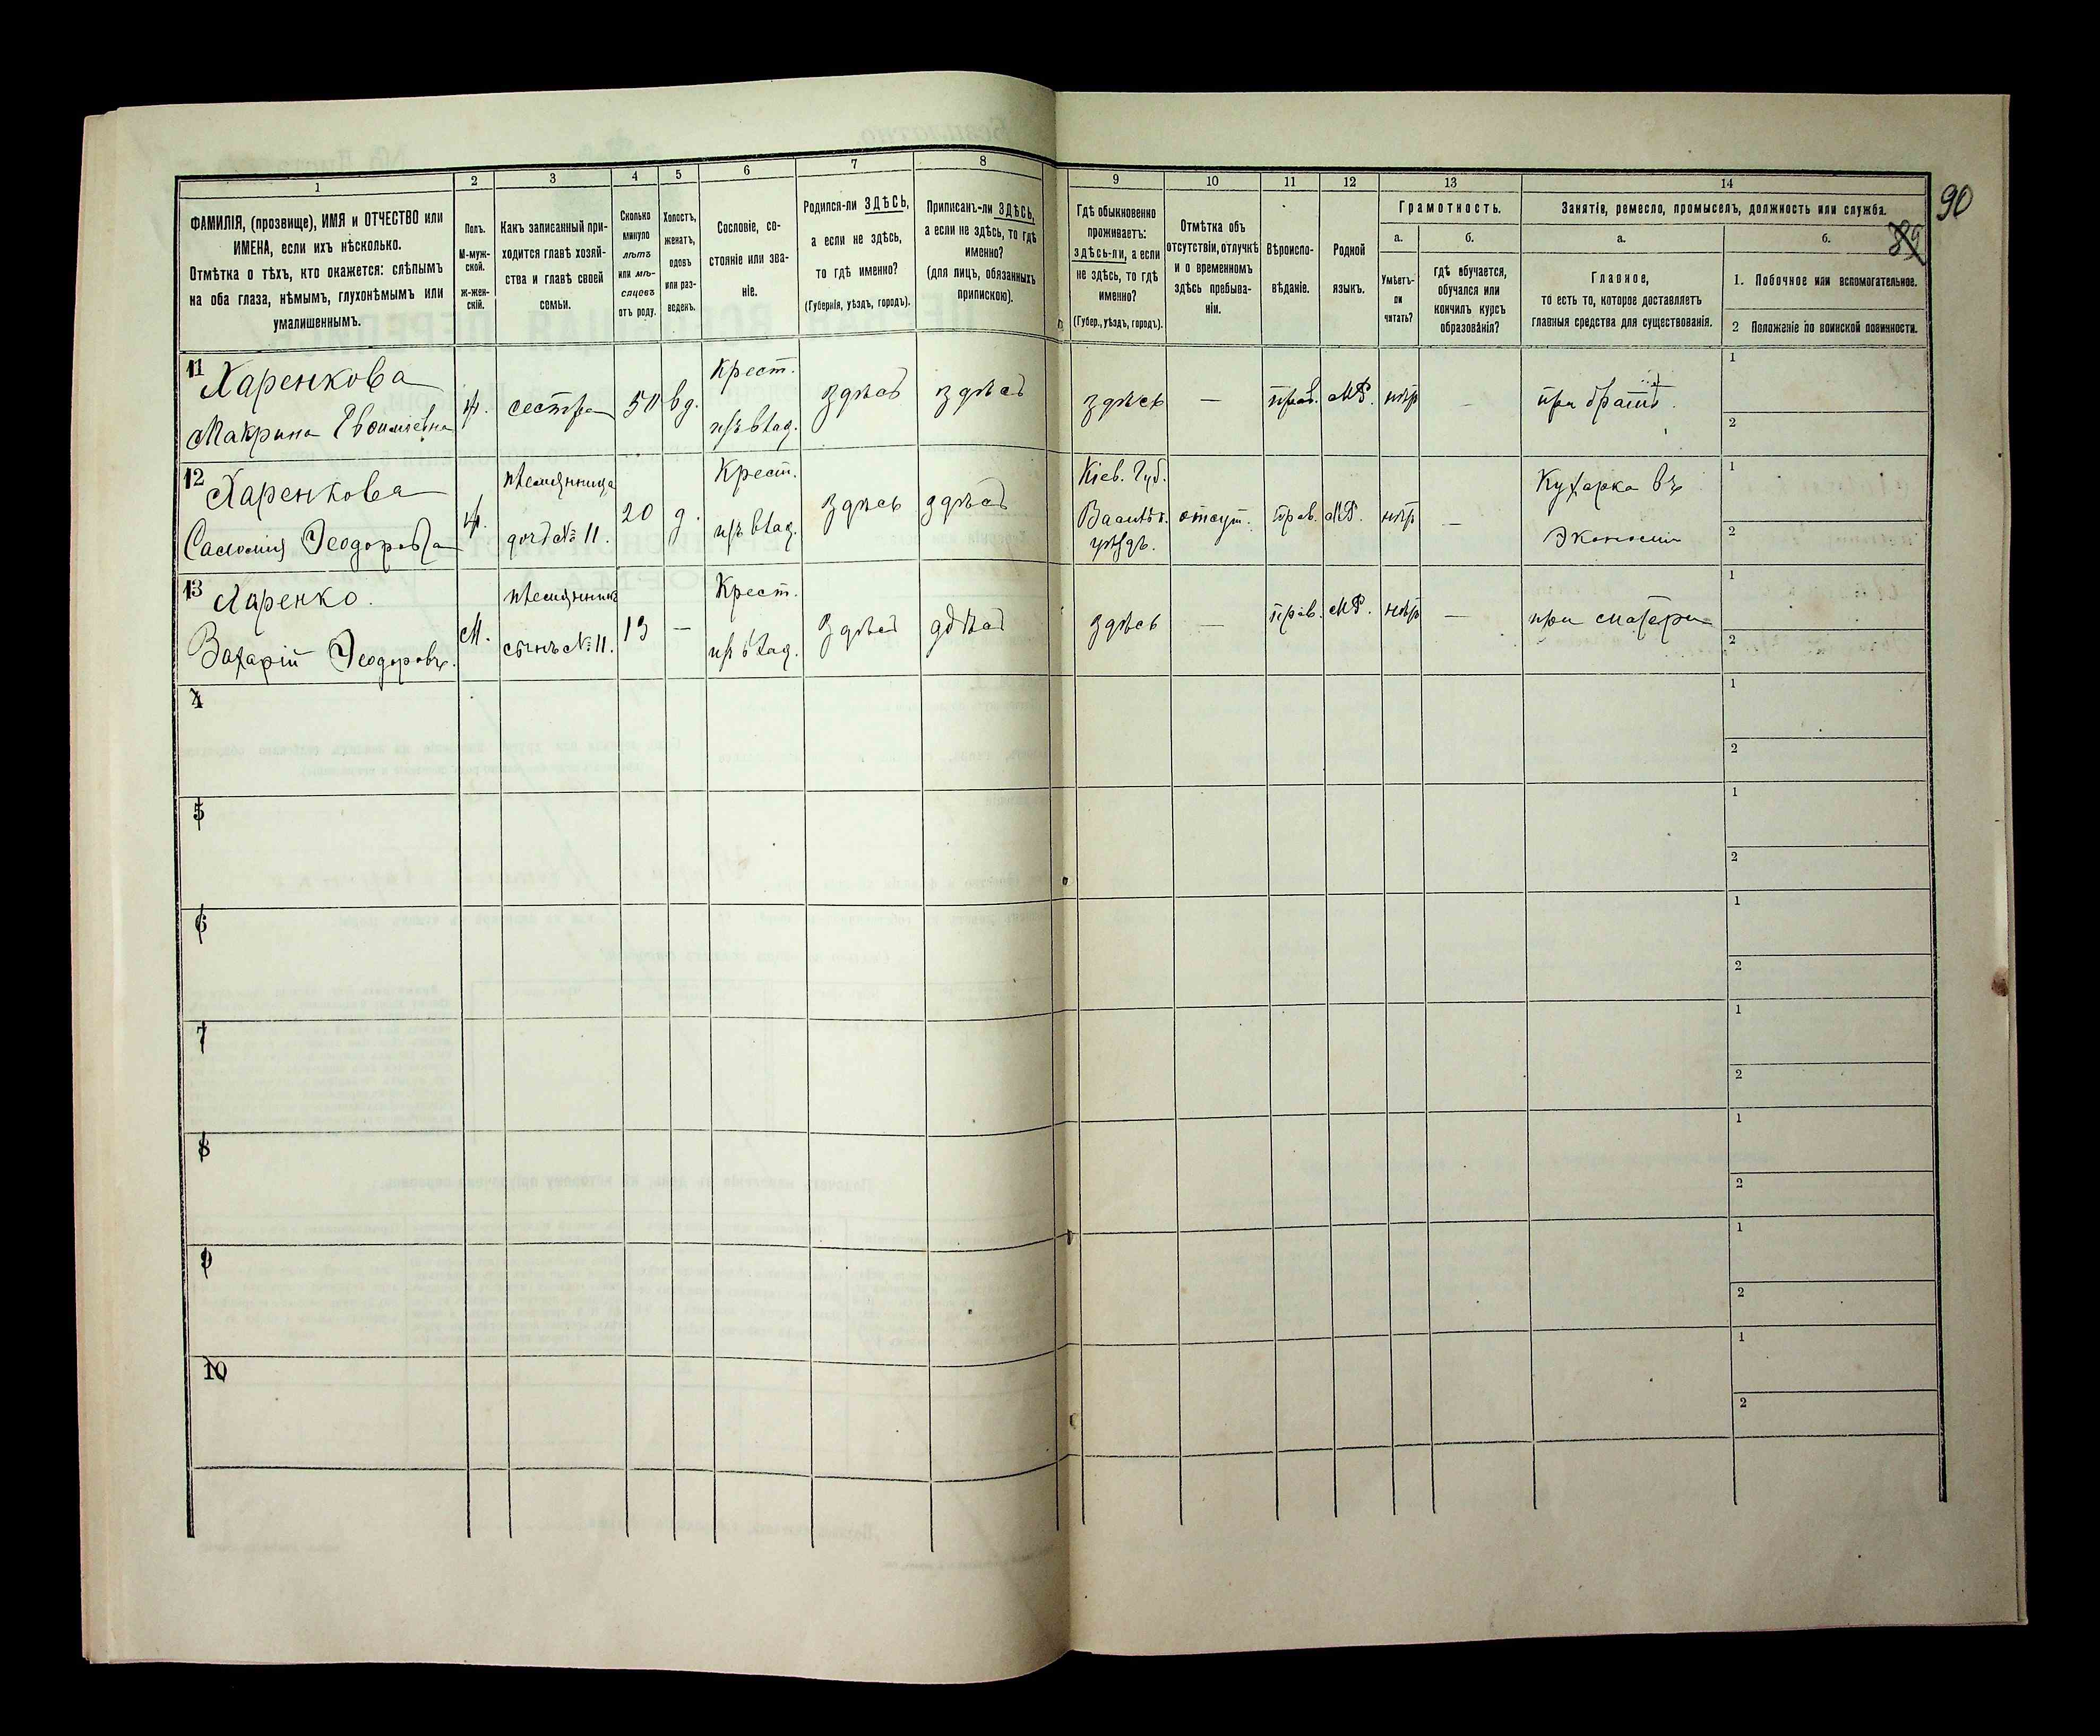 1
2
3
4
5
6
7
8
9
10
11
12
13
14
90
89
ФАМИЛІЯ, (прозвище), ИМЯ и ОТЧЕСТВО или
ИМЕНА, если ихъ нѣсколько.
Отмѣтка о тѣхъ, кто окажется: слѣпымъ
на оба глаза, нѣмымъ, глухонѣмымъ или
умалишеннымъ.
Полъ.
М-муж-
ской.
ж-жен-
скій.
Какъ записанный при-
ходится главѣ хозяй-
ства и главѣ своей
семьи.
Сколько
минуло
лѣтъ
или мѣ-
сяцевъ
отъ роду.
Холостъ,
женатъ,
вдовъ
или раз-
веденъ.
Сословіе, со-
стояніе или зва-
ніе.
Родился-ли ЗДѢСЬ,
а если не здѣсь,
то гдѣ именно?
(Губернія, уѣздъ, городъ).
Приписанъ-ли ЗДѢСЬ,
а если не здѣсь, то гдѣ
именно?
(для лицъ, обязанныхъ
припискою).
Гдѣ обыкновенно
проживаетъ:
здѣсь-ли, а если
не здѣсь, то гдѣ
именно?
(Губер., уѣздъ, городъ).
Отмѣтка объ
отсутствіи, отлучкѣ
и о временномъ
здѣсь пребыва-
ніи.
Вѣроиспо-
вѣданіе.
Родной
языкъ.
Грамотность.
а.
Умѣетъ-
ли
читать?
б.
гдѣ обучается,
обучался или
кончилъ курсъ
образованія?
Занятія, ремесло, промыселъ, должность или служба.
а.
Главное,
то есть то, которое доставляетъ
главныя средства для существованія.
б.
1. Побочное или вспомогательное.
2 Положеніе по воинской повинности.
11 Харенкова
Макрина
ж.
сестра
50
вд.
Крест.
изъ влад.
здѣсь
здѣсь
здѣсь
—
прав.
МР.
нѣтъ
—
при братѣ.
1
2
12 Харенкова
Саломія Ѳеодорова
ж.
племянница
дочь № 11.
20
д.
Крест.
изъ влад.
здѣсь
здѣсь
Кіев. Губ.
Васильк.
уѣздъ.
отсут.
прав.
МР.
нѣтъ
—
Кухарка въ
Экономіи
1
2
13 Харенко.
Захарій Ѳеодоровъ.
М.
племянникъ
сынъ № 11.
13
—
Крест.
изъ влад.
здѣсь
здѣсь
здѣсь
—
прав.
МР.
нѣтъ
—
при матери
1
2
4
1
2
5
1
2
6
1
2
7
1
2
8
1
2
9
1
2
10
1
2